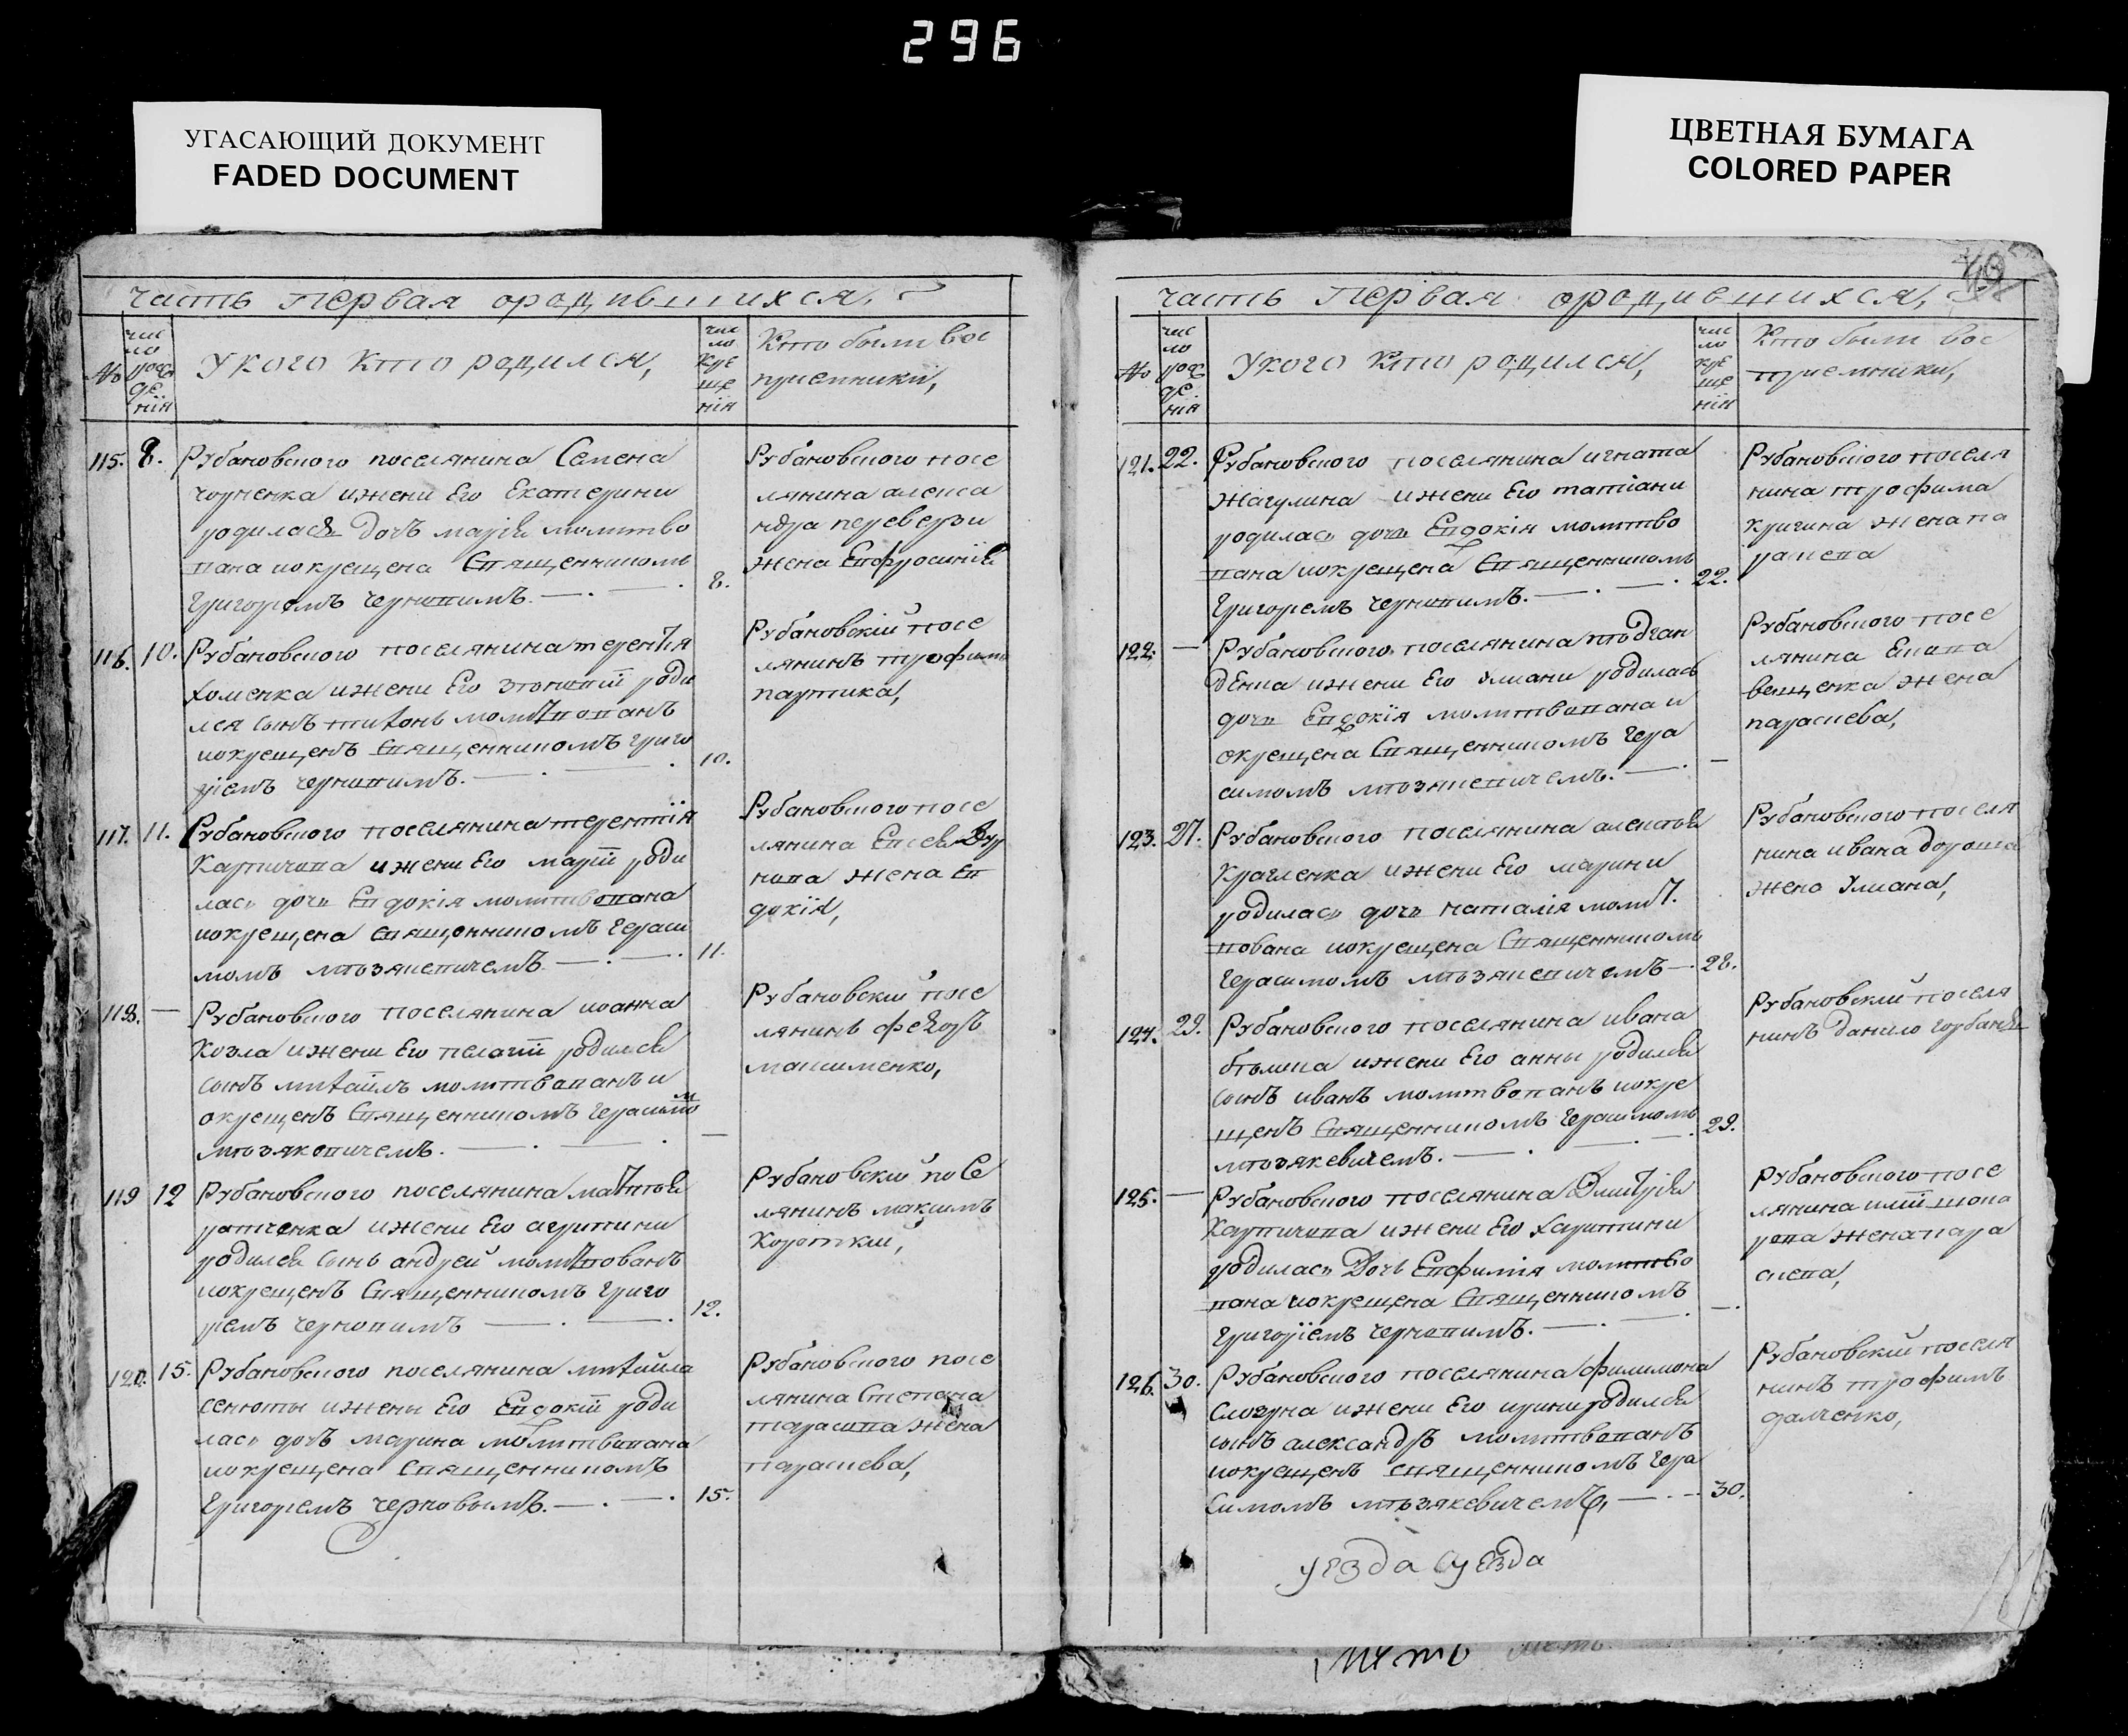 296
УГАСАЮЩИЙ ДОКУМЕНТ
FADED DOCUMENT
ЦВЕТНАЯ БУМАГА
COLORED PAPER
часть первая ородившихся,
№
чис
ло
рож
де
нія
Укого Кто родился,
чис
ло
кре
ще
нія
Кто были вос
приемники,
115. 8. Рубановского поселянина Семена
чорненка ижени Его Екатерини
родилася дочъ марія молитво
вана иокрещена Священникомъ
Григоріемъ Черновимъ. 8.
Рубановского посе
лянина алекса
ндра
жена Евфросинія
116. 10. Рубановского поселянина терентія
Хоменка ижени Его роди
лся сынъ тихонъ молитвованъ
иокрещенъ Священникомъ Григо
ріемъ Черновимъ. 10.
Рубановскій посе
лянинъ трофимъ
117. 11. Рубановского поселянина терентія
Карпичова ижени Его маріи роди
лась дочь Евдокія молитвована
иокрещена Священникомъ Гераси
момъ 11.
Рубановского посе
лянина
жена Ев
докія,
118. — Рубановского поселянина иоанна
Козла ижени Его пелагіи родился
сынъ михаилъ молитвованъ и
окрещенъ Священникомъ Герасимо
м
—
Рубановскій посе
лянинъ
максименко,
119 12 Рубановского поселянина матвія
ижени Его агрипини
родился сынъ андрей молитвованъ
иокрещенъ Священникомъ Григо
ріемъ Черновимъ 12.
Рубановскій посе
лянинъ максимъ
Короткий,
120. 15. Рубановского поселянина михаила
сенюты ижены Его Евдокіи роди
лась дочъ марина молитвована
иокрещена Священникомъ
Григоріемъ черновымъ. 15.
Рубановского посе
лянина Степана
жена
параскева,
часть Первая ородившихся,
№
чис
ло
рож
де
нія
Укого Кто родился,
чис
ло
кре
ще
нія
Кто были вос
приемники,
121. 22. Рубановского поселянина игната
Жагулина ижени Его татіани
родилась дочь Евдокія молитво
вана иокрещена Священникомъ
Григоріемъ Черновимъ. 22.
Рубановского поселя
нина трофима
кричина жена па
раскева
122. — Рубановского поселянина
ижени Его Улиани родилась
дочь Евдокія молитвована и
окрещена Священникомъ Гера
симомъ —
Рубановского посе
лянина
жена
параскева,
123. 27. Рубановского поселянина алексія
ижени Его марини
родилась дочь наталія молит.
вована иокрещена Священникомъ
Герасимомъ 28.
Рубановского поселя
нина ивана дороша
жена Улиана,
124. 29. Рубановского поселянина ивана
ижени Его анны родился
сынъ иванъ молитвованъ иокре
щенъ Священникомъ Герасимомъ
29.
Рубановскій поселя
нинъ данило горбань
125. — Рубановского поселянина Димитрія
Карпичова ижени Его Харитини
родилась Дочь Евфимія молитво
вана иокрещена Священникомъ
Григоріемъ Черновимъ. —
Рубановского посе
лянина
жена пара
скева,
126. 30. Рубановского поселянина филимона
ижени Его ирини родился
сынъ александръ молитвованъ
иокрещенъ священникомъ Гера
Симомъ 30.
Рубановскій поселя
нинъ трофимъ